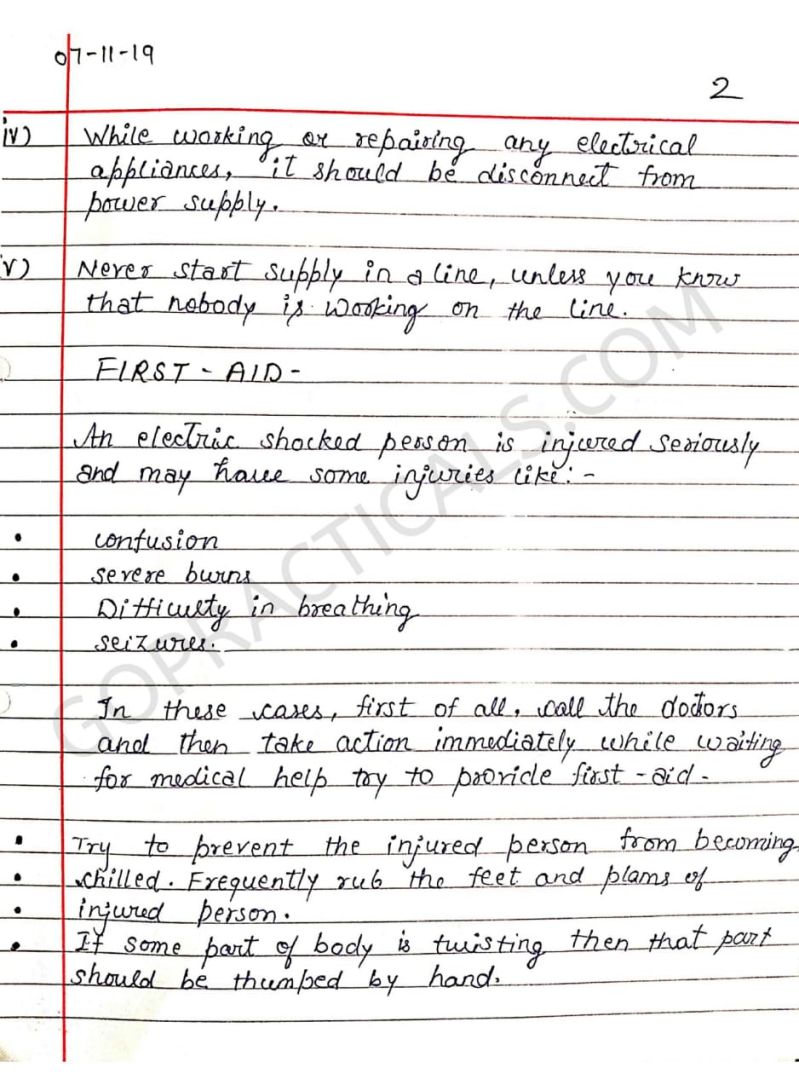 07-11-19
2
iv) While working or repairing any electrical
appliances, it should be disconnect from
power supply.
v) Never start supply in a line, unless you know
that nobody is working on the line.
FIRST - AID -
An electric shocked person is injured seriously
and may have some injuries like :-
• confusion
• severe burns
• Difficulty in breathing
• seizures.
In these cases, first of all, call the doctors
and then take action immediately while waiting
for medical help try to provide first - aid -
• Try to prevent the injured person from becoming
• chilled. Frequently rub the feet and plams of
• injured person.
• If some part of body is twisting then that part
should be thumped by hand.
GOPRACTICALS.COM